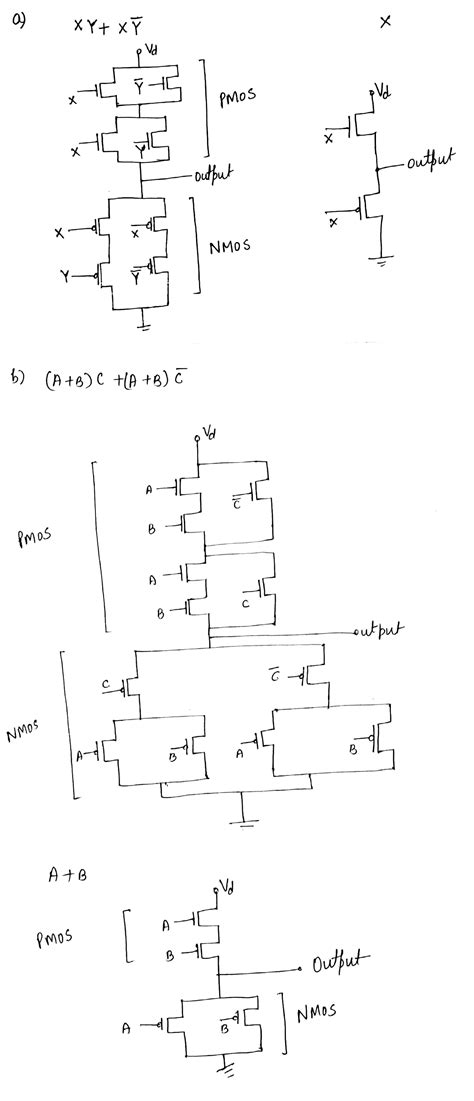 a) XY + XY̅ X
Vd
X Y̅
PMOS
X Y
output
X X
NMOS
Y Y̅
Vd
X
output
X
b) (A+B) C + (A+B) C̅
Vd
A
C̅
B
PMOS
A
B C
output
C C̅
NMOS
A B A B
A+B
Vd
PMOS
A
B
Output
A B
NMOS